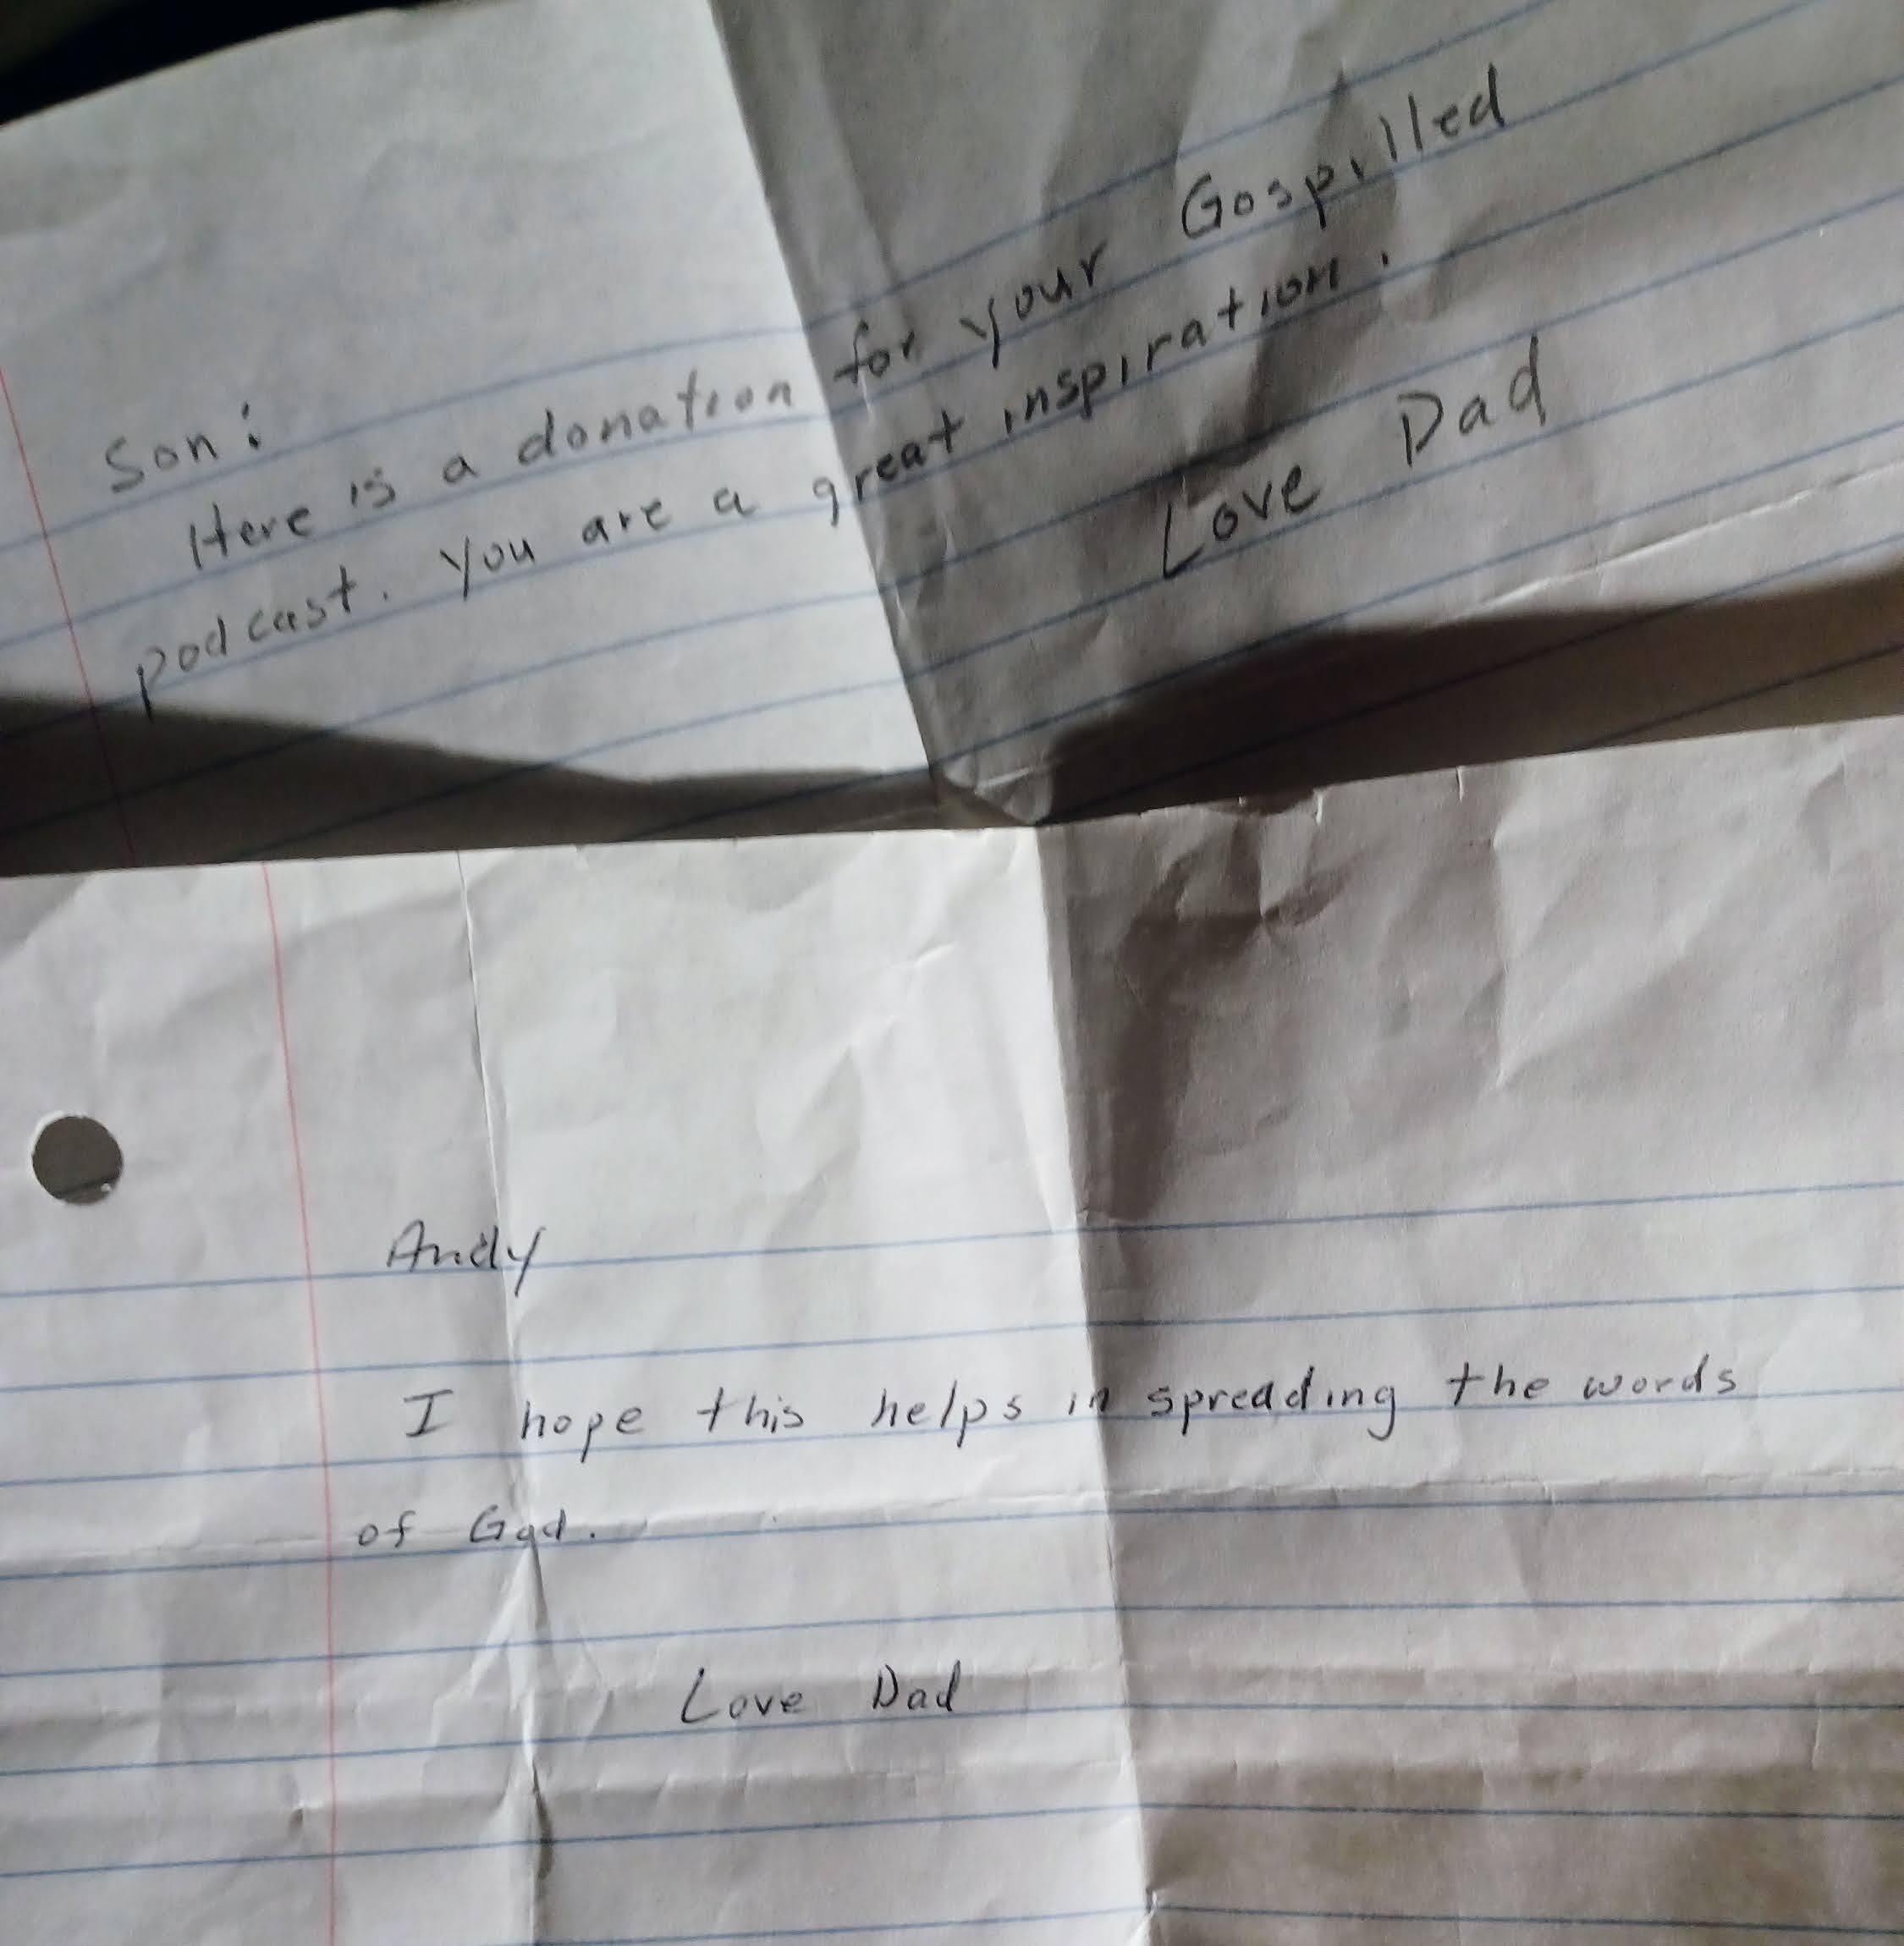 Son:
Here is a donation for your Gospilled
podcast. You are a great inspiration.
Love Dad
Andy
I hope this helps in spreading the words
of God.
Love Dad